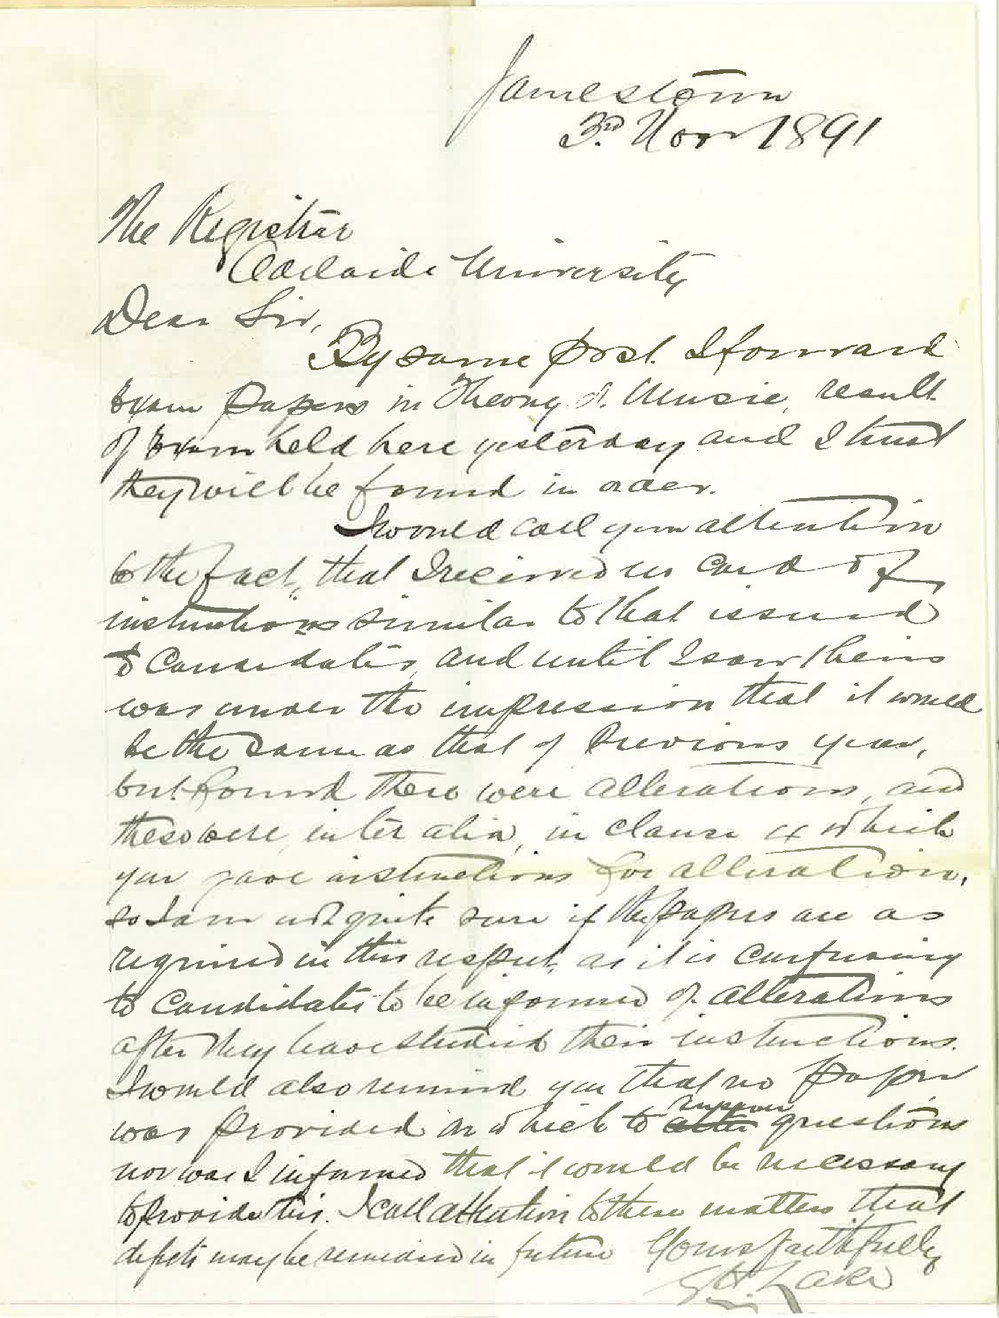 Jamestown
3rd Novr 1891
The Registrar
Adelaide University
Dear Sir,
By same post I forward
Exam papers in Theory of Music, result
of Exam held here yesterday and I trust
they will be found in order.
I would call your attention
to the fact, that I received no card of
instructions similar to that issued
to Candidates, and until I saw theirs
was under the impression that it would
be the same as that of previous year,
but found there were alterations, and
these were, inter alia, in clause 4 which
you gave instructions for alteration,
so I am not quite sure if the papers are as
required in this respect, as it is confusing
to candidates to be informed of alterations
after they have studied their instructions.
I would also remind you that no paper
was provided on which to answer questions
nor was I informed that it would be necessary
to provide this. I call attention to these matters that
defects may be remedied in future Yours faithfully
G H. Lake